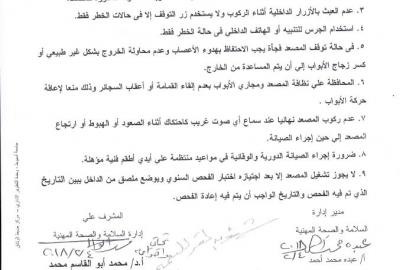 ٣. عدم العبث بالأزرار الداخلية أثناء الركوب ولا يستخدم زر التوقف إلا فى حالات الخطر فقط.
٤. استخدام الجرس للتنبيه أو الهاتف الداخلى فى حالة الخطر فقط.
٥. فى حالة توقف المصعد فجأة يجب الاحتفاظ بهدوء الأعصاب وعدم محاولة الخروج بشكل غير طبيعي أو
كسر زجاج الأبواب إلي أن يتم المساعدة من الخارج.
٦. المحافظة علي نظافة المصعد ومجاري الأبواب بعدم إلقاء القمامة أو أعقاب السجائر وذلك منعا لإعاقة
حركة الأبواب .
٧. عدم ركوب المصعد نهائيا عند سماع أي صوت غريب كاحتكاك أثناء الصعود أو الهبوط أو ارتجاع
المصعد إلي حين إجراء الصيانة.
٨. ضرورة إجراء الصيانة الدورية والوقائية في مواعيد منتظمة علي أيدي أطقم فنية مؤهلة.
٩. لا يجوز تشغيل المصعد إلا بعد اجتيازه اختبار الفحص السنوي ويوضع ملصق من الداخل يبين التاريخ
الذي تم فيه الفحص والتاريخ الواجب أن يتم فيه إعادة الفحص.
مدير إدارة
السلامة والصحة المهنية
أ/ عبده محمد أحمد
المشرف علي
إدارة السلامة والصحة المهنية
أ.د/ محمد أبو القاسم محمد